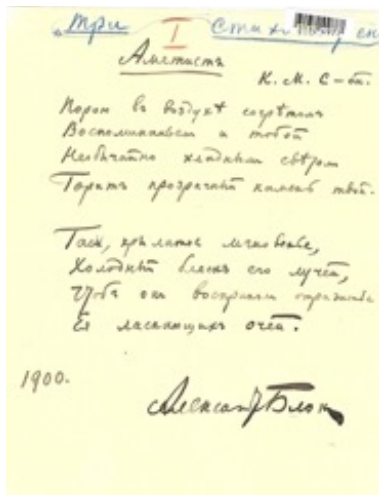 „Три I стихотворен
Аметистъ
К. М. С–ой.
Порою въ воздухѣ согрѣтомъ
Воспоминаньем и тобой
Необычайно хладнымъ свѣтомъ
Горитъ прозрачный камень твой.
Гаси, крылатое мгновенье,
Холодный блескъ его лучей,
Чтобъ онъ воспринялъ отраженье
Ея ласкающихъ очей.
1900.
Александр Блок